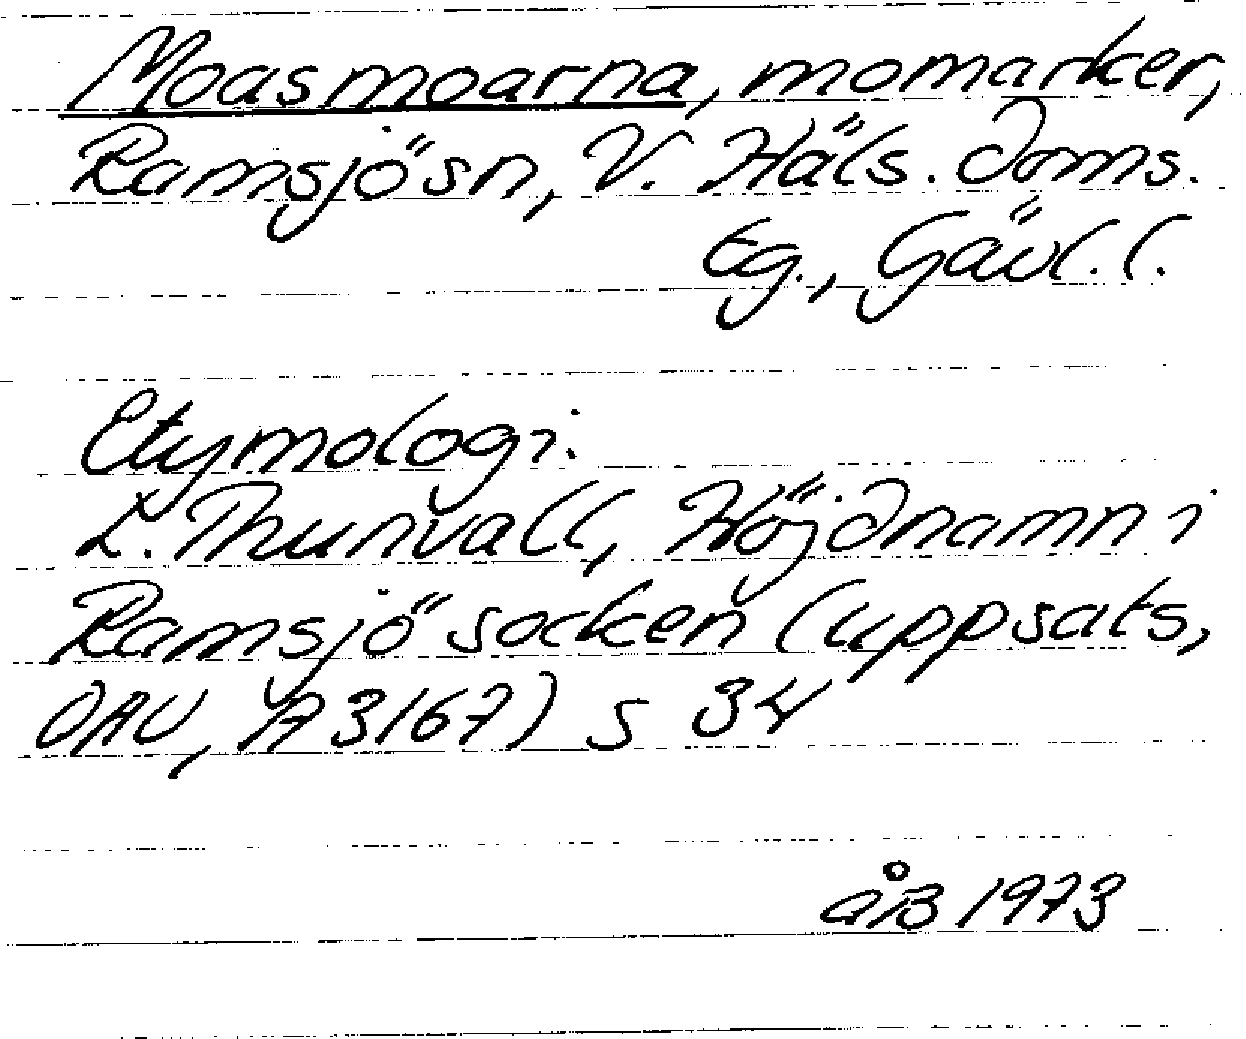 Moasmoarna, momarker,
Ramsjö sn, V. Häls. doms.
Eg., Gävl. l.
Etymologi.
L. Thunvall, Höjdnamn i
Ramsjö socken (uppsats,
OAU, A 3167) s 34
åB 1973